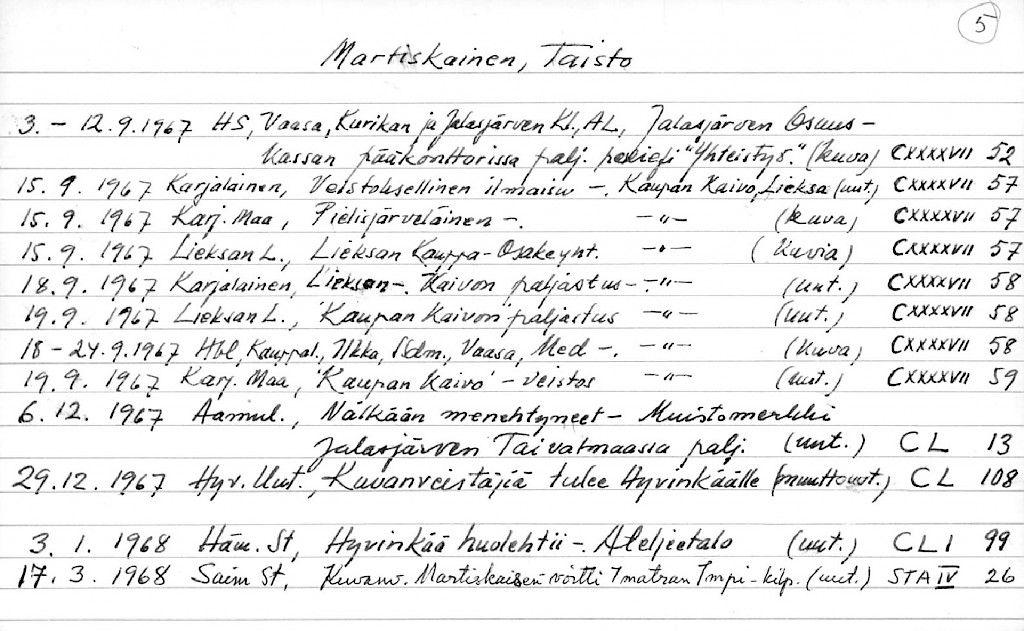 5
Martiskainen, Taisto
3. - 12.9.1967 HS, Vaasa, Kurikan ja Jalasjärven Kl., AL, Jalasjärven Osuus-
Kassan pääkonttorissa palj. reliefi "Yhteistyö." (kuva) CXXXXVII 52
15. 9. 1967 Karjalainen, Veistoksellinen ilmaisu -. Kaupan Kaivo, Lieksa (uut.) CXXXXVII 57
15. 9. 1967 Karj. Maa, Pielisjärveläinen -. -"- (kuva) CXXXXVII 57
15. 9. 1967 Lieksan L., Lieksan Kauppa-Osakeyht. -"- (kuvia) CXXXXVII 57
18. 9. 1967 Karjalainen, Lieksan -. Kaivon paljastus -. -"- (uut.) CXXXXVII 58
19. 9. 1967 Lieksan L., 'Kaupan Kaivon' paljastus -"- (uut.) CXXXXVII 58
18 - 24.9.1967 Hbl, Kauppal., Ilkka, Sdm., Vaasa, Med -. -"- (kuva) CXXXXVII 58
19. 9. 1967 Karj. Maa, 'Kaupan Kaivo' - veistos -"- (uut.) CXXXXVII 59
6. 12. 1967 Aamul., Nälkään menehtyneet - Muistomerkki
Jalasjärven Taivalmaassa palj. (uut.) CL 13
29.12. 1967 Hyv. Uut., Kuvanveistäjiä tulee Hyvinkäälle (muuttouut.) CL 108
3. 1. 1968 Häm. St, Hyvinkää huolehtii -. Ateljeetalo (uut.) CLI 99
17. 3. 1968 Saim St, Kuvanv. Martiskaisen voitti Imatran Impi - kilp. (uut.) STA IV 26